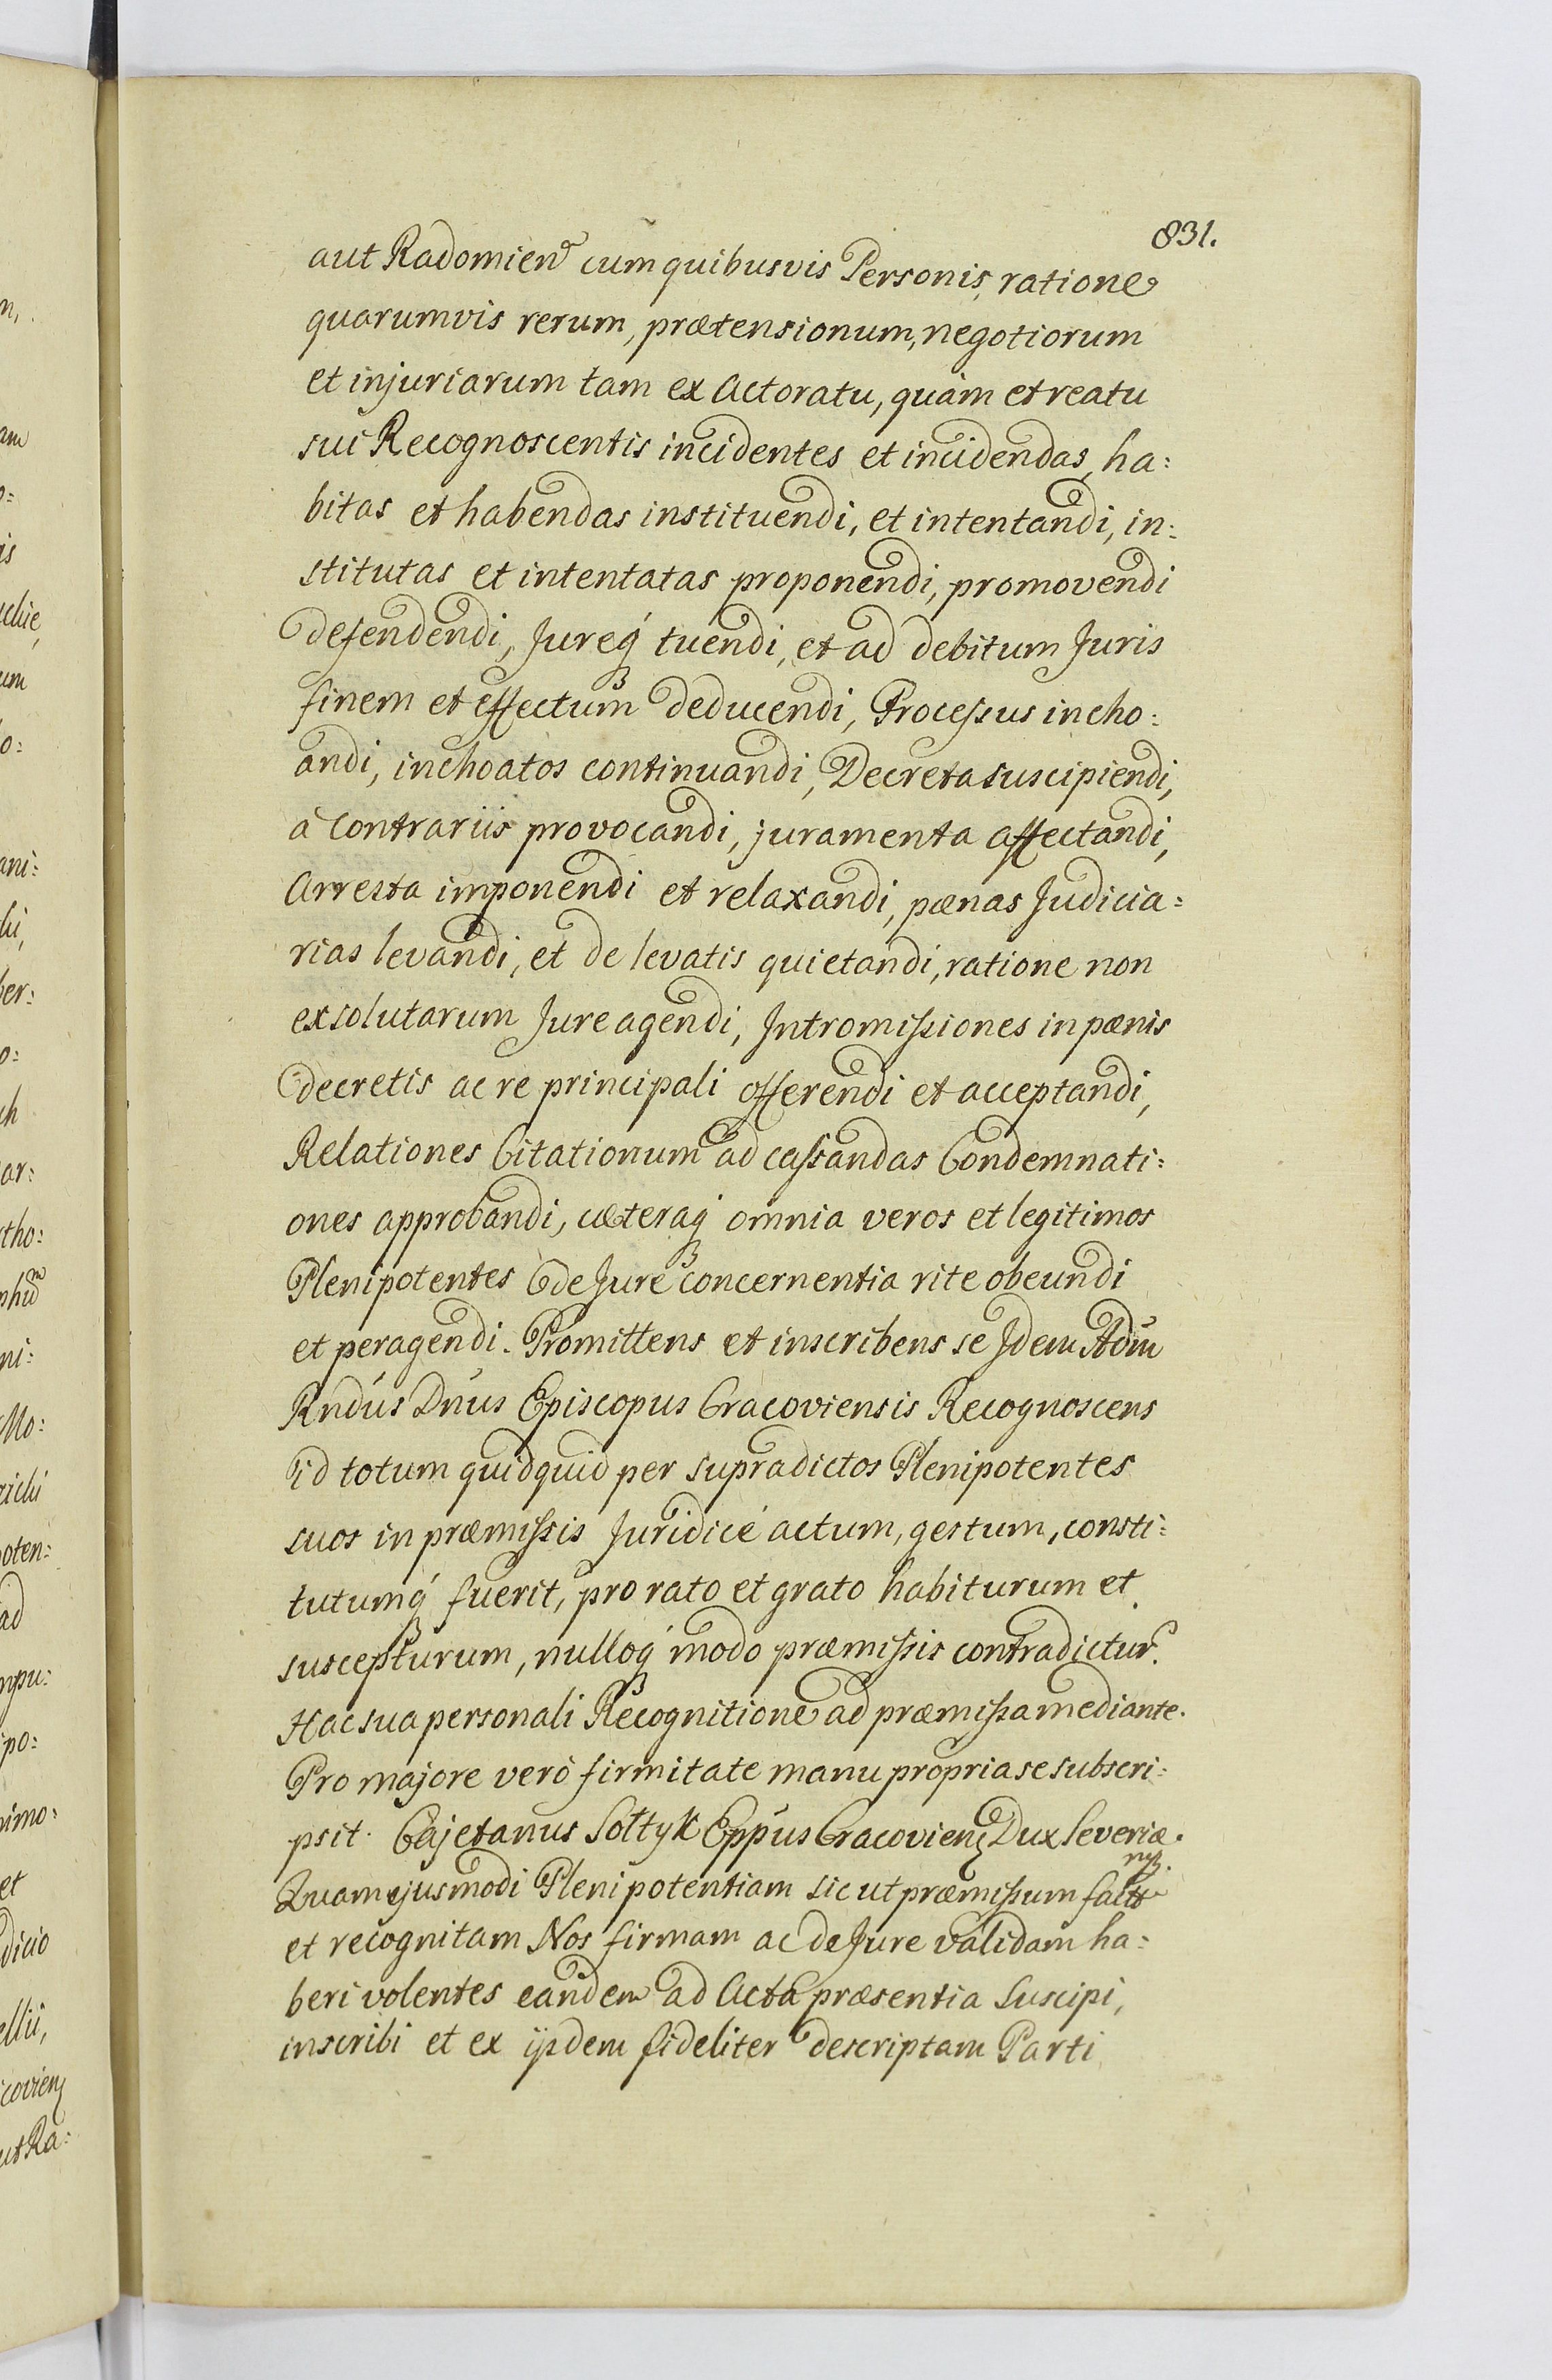 831.
aut Radomien cum quibusvis Personis, ratione
quarumvis rerum, prætensionum, negotiorum
et injuriarum tam ex Actoratu, quàm et reatu
sui Recognoscentis incidentes et incidendas, ha:
bitas et habendas instituendi, et intentandi, in:
stitutas et intentatas proponendi, promovendi
defendendi, Jureq́ tuendi, et ad debitum Juris
finem et effectum deducendi, Processus incho:
andi, inchoatos continuandi, Decreta suscipiendi,
à Contrariis provocandi, juramenta affectandi,
Arresta imponendi et relaxandi, pænas Judicia:
rias levandi, et de levatis quietandi, ratione non
exsolutarum Jure agendi, Intromissiones in pænis
decretis ac re principali offerendi et acceptandi,
Relationes Citationum ad cassandas Condemnati:
ones approbandi, cæteraq́ omnia veros et legitimos
Plenipotentes de Jure concernentia rite obeundi
et peragendi. Promittens et inscribens se Idem Adm
Rndus Dnus Episcopus Cracoviensis Recognoscens
id totum quidquid per supradictos Plenipotentes
suos in præmissis Juridicé actum, gestum, consti:
tutumq́ fuerit, pro rato et grato habiturum et
suscepturum, nulloq́ modo præmissis contradictur.
Hac sua personali Recognitione ad præmissa mediante.
Pro majore verò firmitate manu propria se subscri:
psit. Cajetanus Sołtyk Eppus Cracovien Dux Severiæ.
mp.
Quam ejusmodi Plenipotentiam sic ut præmissum
et recognitam Nos firmam ac de Jure validam ha:
beri volentes eandem ad Acta præsentia Suscipi,
inscribi et ex ijsdem fideliter descriptam Parti
n,
am
o:
is
um
o:
ani:
er:
o:
ch
ar:
tho:
ni:
Mo:
oten:
ad
mpu:
po:
nimo:
et
dicio
ellii,
covien
ut Ra: